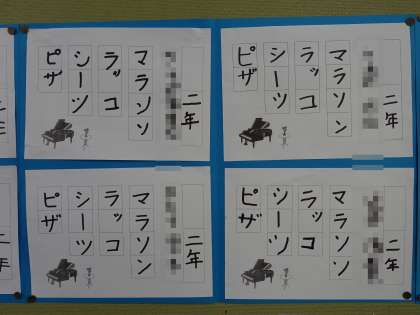 二年
マラソン
ラッコ
シーツ
ピザ
二年
マラソン
ラッコ
シーツ
ピザ
二年
マラソン
ラッコ
シーツ
ピザ
二年
マラソン
ラッコ
シーツ
ピザ
二年